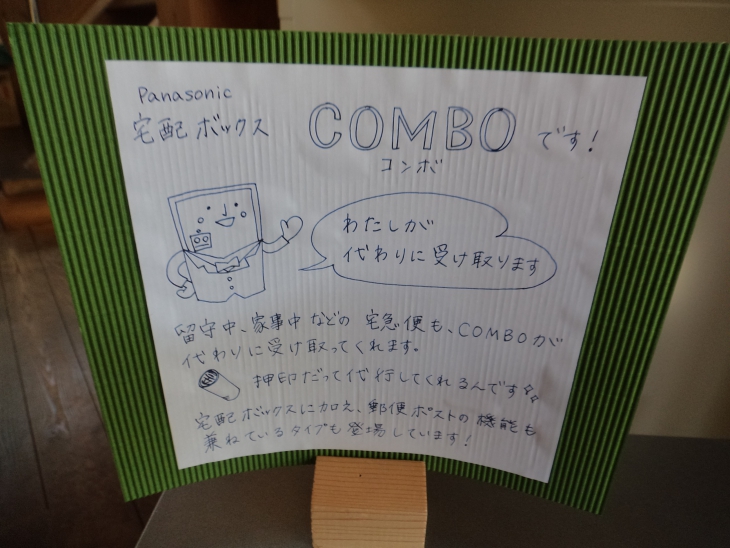 Panasonic
宅配ボックス COMBO です!
コンボ
わたしが
代わりに受け取ります
留守中、家事中などの 宅急便も、COMBOが
代わりに受け取ってくれます。
押印だって代行してくれるんです
宅配ボックスに加え、郵便ポストの機能も
兼ねているタイプも登場しています!